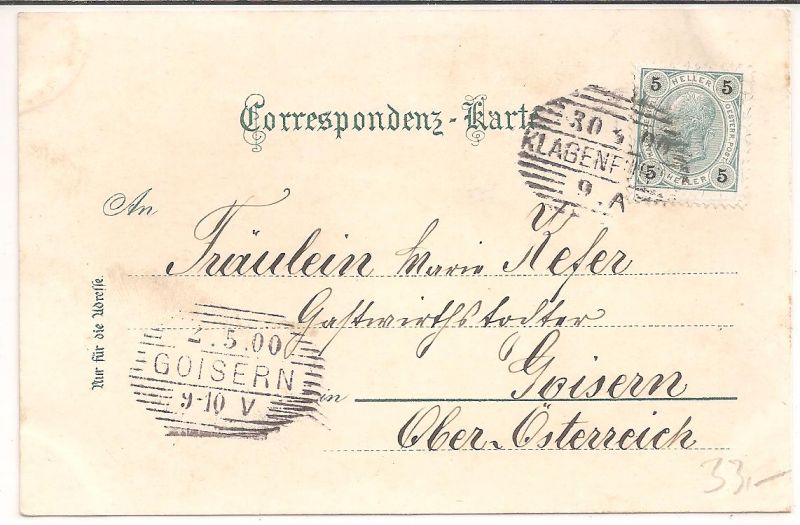 5 HELLER 5
OESTERR. POST
5 HELLER 5
Correspondenz-Karte
30 5 00
KLAGENF
9. A
An
Fräulein Marie Kefer
Gastwirthstochter
in Goisern
Ober-Österreich
Nur für die Adresse.
2.5.00
GOISERN
9-10 V
33,-